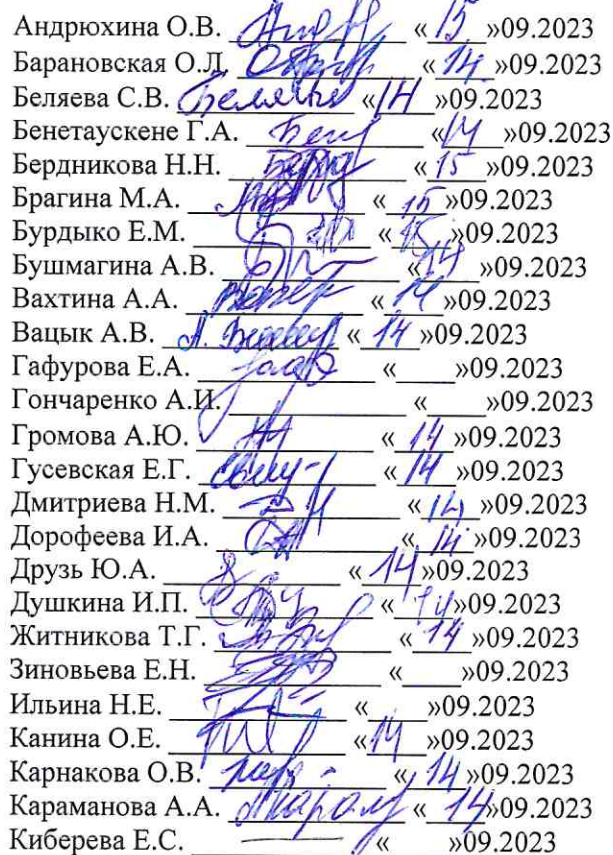 Андрюхина О.В. «15»09.2023
Барановская О.Л. «14»09.2023
Беляева С.В. Беляева «14»09.2023
Бенетаускене Г.А. «14»09.2023
Бердникова Н.Н. «15»09.2023
Брагина М.А. «15»09.2023
Бурдыко Е.М. «15»09.2023
Бушмагина А.В. «14»09.2023
Вахтина А.А. «14»09.2023
Вацык А.В. «14»09.2023
Гафурова Е.А. «____»09.2023
Гончаренко А.И. ____________ «____»09.2023
Громова А.Ю. «14»09.2023
Гусевская Е.Г. «14»09.2023
Дмитриева Н.М. «14»09.2023
Дорофеева И.А. «14»09.2023
Друзь Ю.А. «14»09.2023
Душкина И.П. «14»09.2023
Житникова Т.Г. «14»09.2023
Зиновьева Е.Н. «____»09.2023
Ильина Н.Е. «____»09.2023
Канина О.Е. «14»09.2023
Карнакова О.В. «14»09.2023
Караманова А.А. «14»09.2023
Киберева Е.С. ____________ «____»09.2023